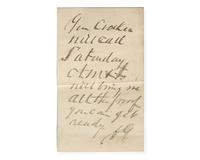 Gen Crocker
will call
Saturday
will bring me
all the proof
you can get
ready